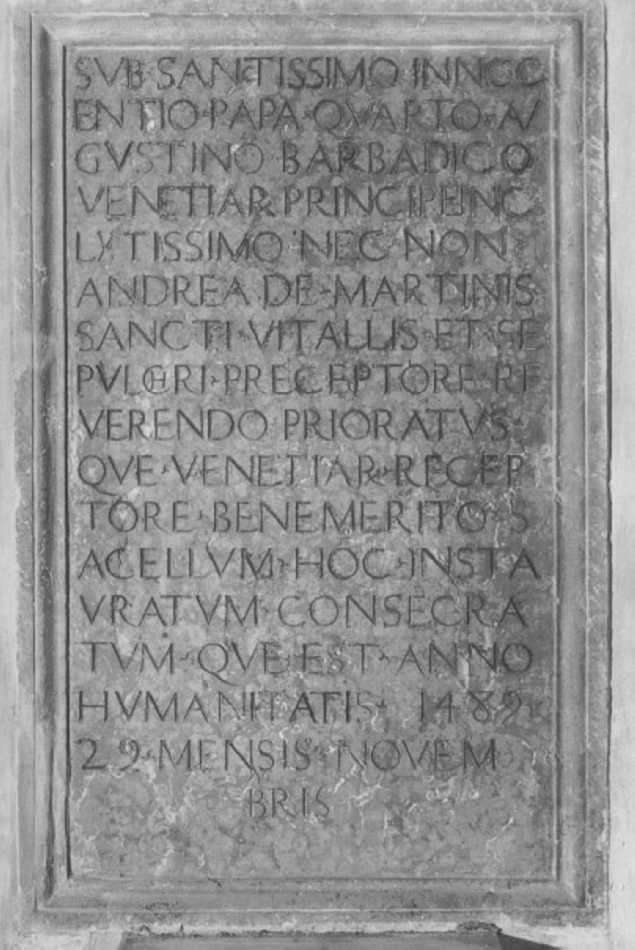 SVB·SANCTISSIMO·INNOC
ENTIO·PAPA·QVARTO·AV
GVSTINO·BARBADICO
VENETIAR·PRINCIPE·INC
LYTISSIMO·NEC·NON
ANDREA·DE·MARTINIS
SANCTI·VITALLIS·ET·SE
PVLCHRI·PRECEPTORE·RE
VERENDO·PRIORATVS·
QVE·VENETIAR·RECEP
TORE·BENEMERITO·S
ACELLVM·HOC·INSTA
VRATVM·CONSECRA
TVM·QVE·EST·ANNO
HVMANITATIS·1489·
29·MENSIS·NOVEM
BRIS